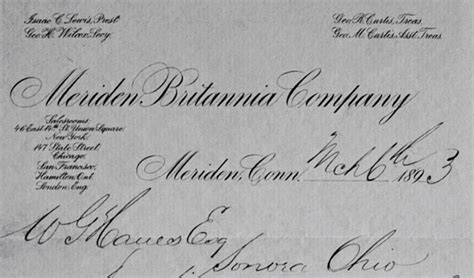 Isaac C. Lewis, Prest.
Geo. H. Wilcox, Secy.
Geo. R. Curtis, Treas.
Geo. M. Curtis, Asst. Treas.
Meriden Britannia Company
Salesrooms
46 East 14th St. Union Square.
New York.
147 State Street
Chicago.
San Francisco.
Hamilton, Ont.
London, Eng.
Meriden, Conn. Mch 6th 1893
W G Hanes Esq
Sonora Ohio